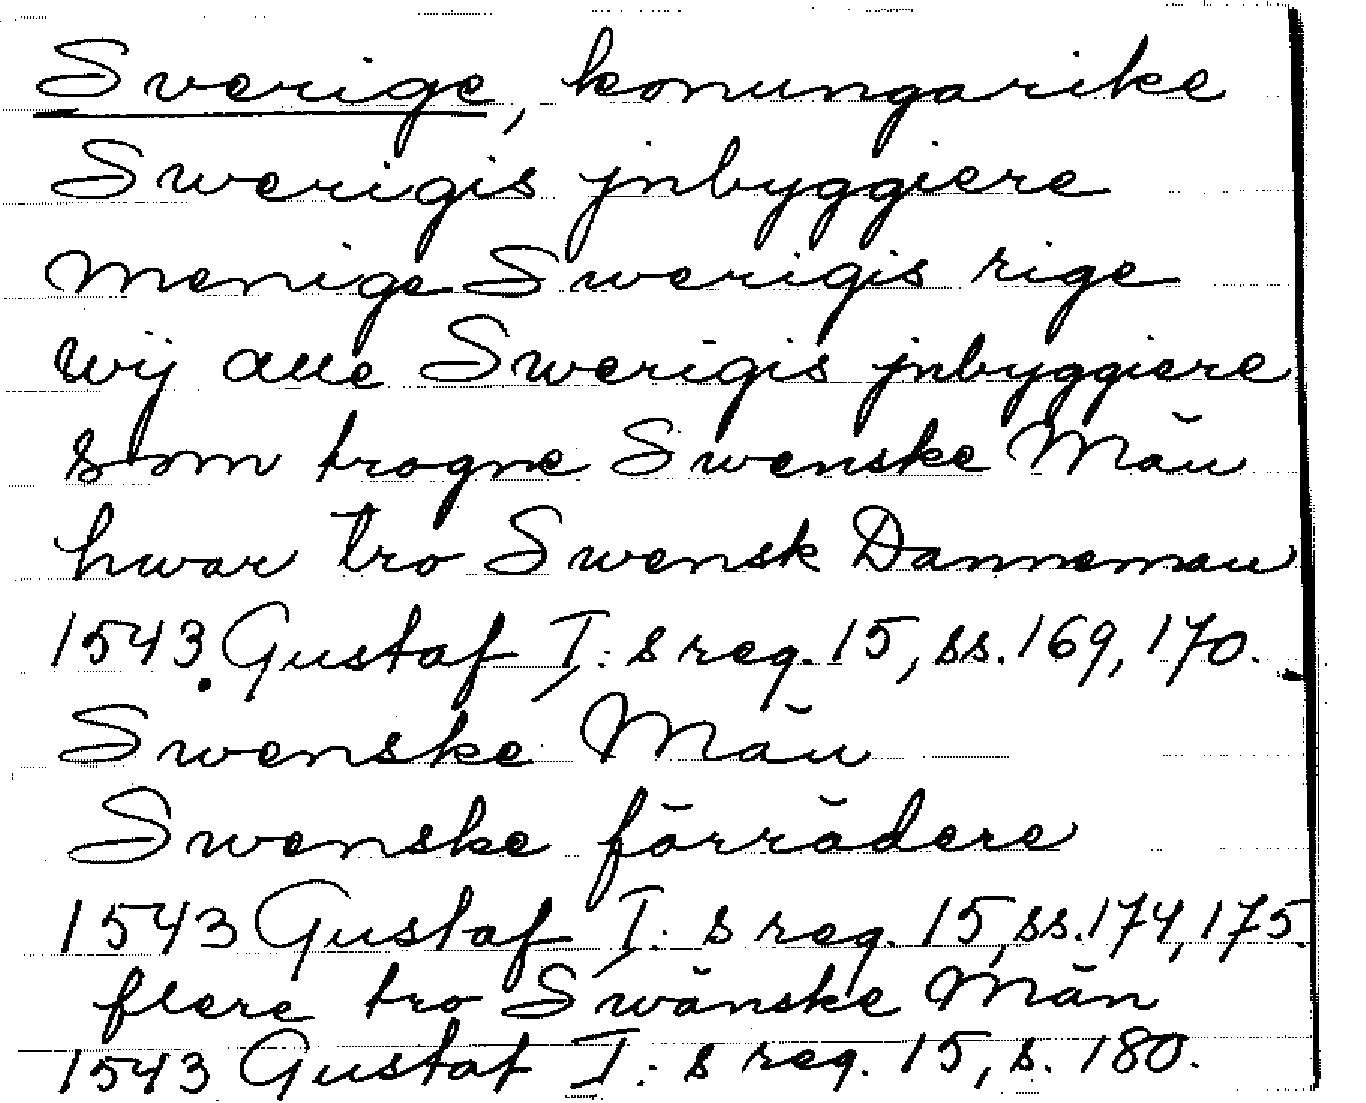 Sverige, konungarike
Swerigis jnbyggiere
menige Swerigis rige
wij alle Swerigis jnbyggiere
som trogne Swenske Män
hwar tro Swensk Danneman
1543. Gustaf I:s reg. 15, ss. 169, 170.
Swenske Män
Swenske förrädere
1543 Gustaf I:s reg. 15, ss. 174, 175.
flere tro Swänske Män
1543 Gustaf I:s reg. 15, s. 180.